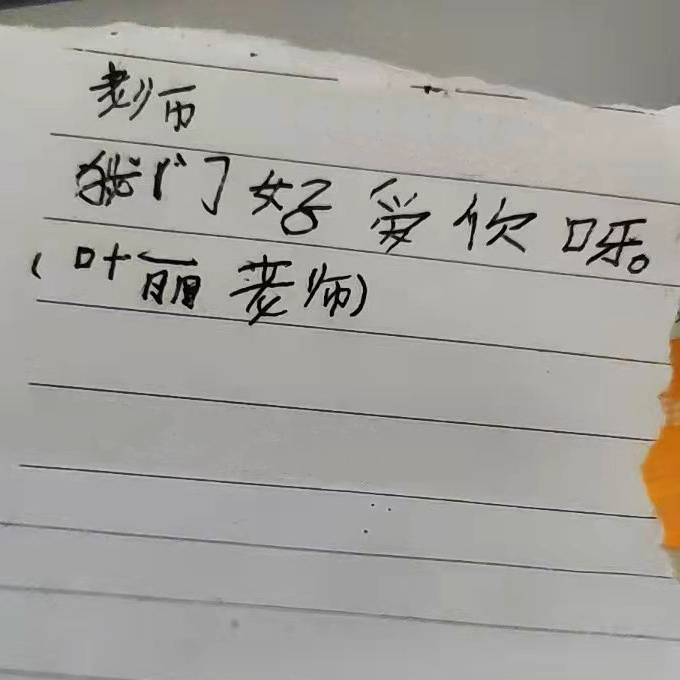 老师
我们好爱你呀。
(叶丽老师)